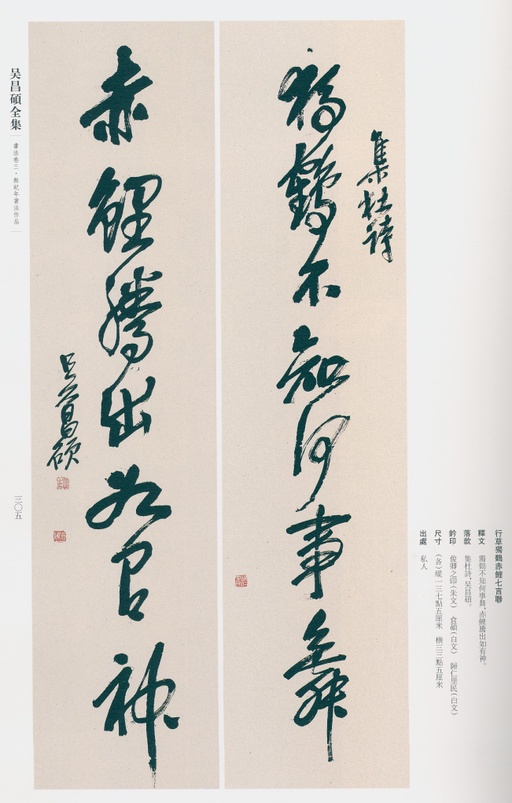 行草獨鶴赤鯉七言聯
釋文 獨鶴不知何事舞,赤鯉騰出如有神。
落款 集杜詩,吴昌碩。
鈐印 俊卿之印(朱文) 倉碩(白文) 歸仁里民(白文)
尺寸 (各)縱一三七點五厘米 橫三三點五厘米
出處 私人
集杜詩
獨鶴不知何事舞
赤鯉騰出如有神
吴昌碩
吴昌碩全集
書法卷三·無紀年書法作品
三〇五